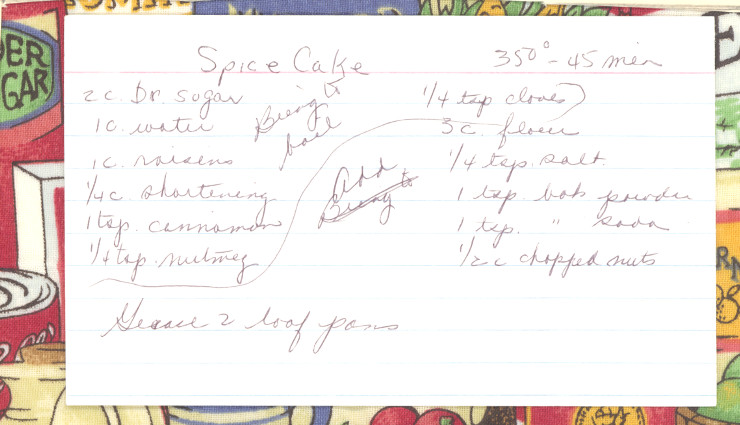 Spice Cake
350° - 45 min
2 c. Br. sugar
1 c. water
1 c. raisens
1/4 c. shortening
1 tsp. cannamon
1/4 tsp. nutmeg
Bring to
boil
1/4 tsp cloves
Add
Bring to
3 c. flour
1/4 tsp. salt
1 tsp. bak powder
1 tsp. " soda
1/2 c chopped nuts
Grease 2 loaf pans
ER
GAR